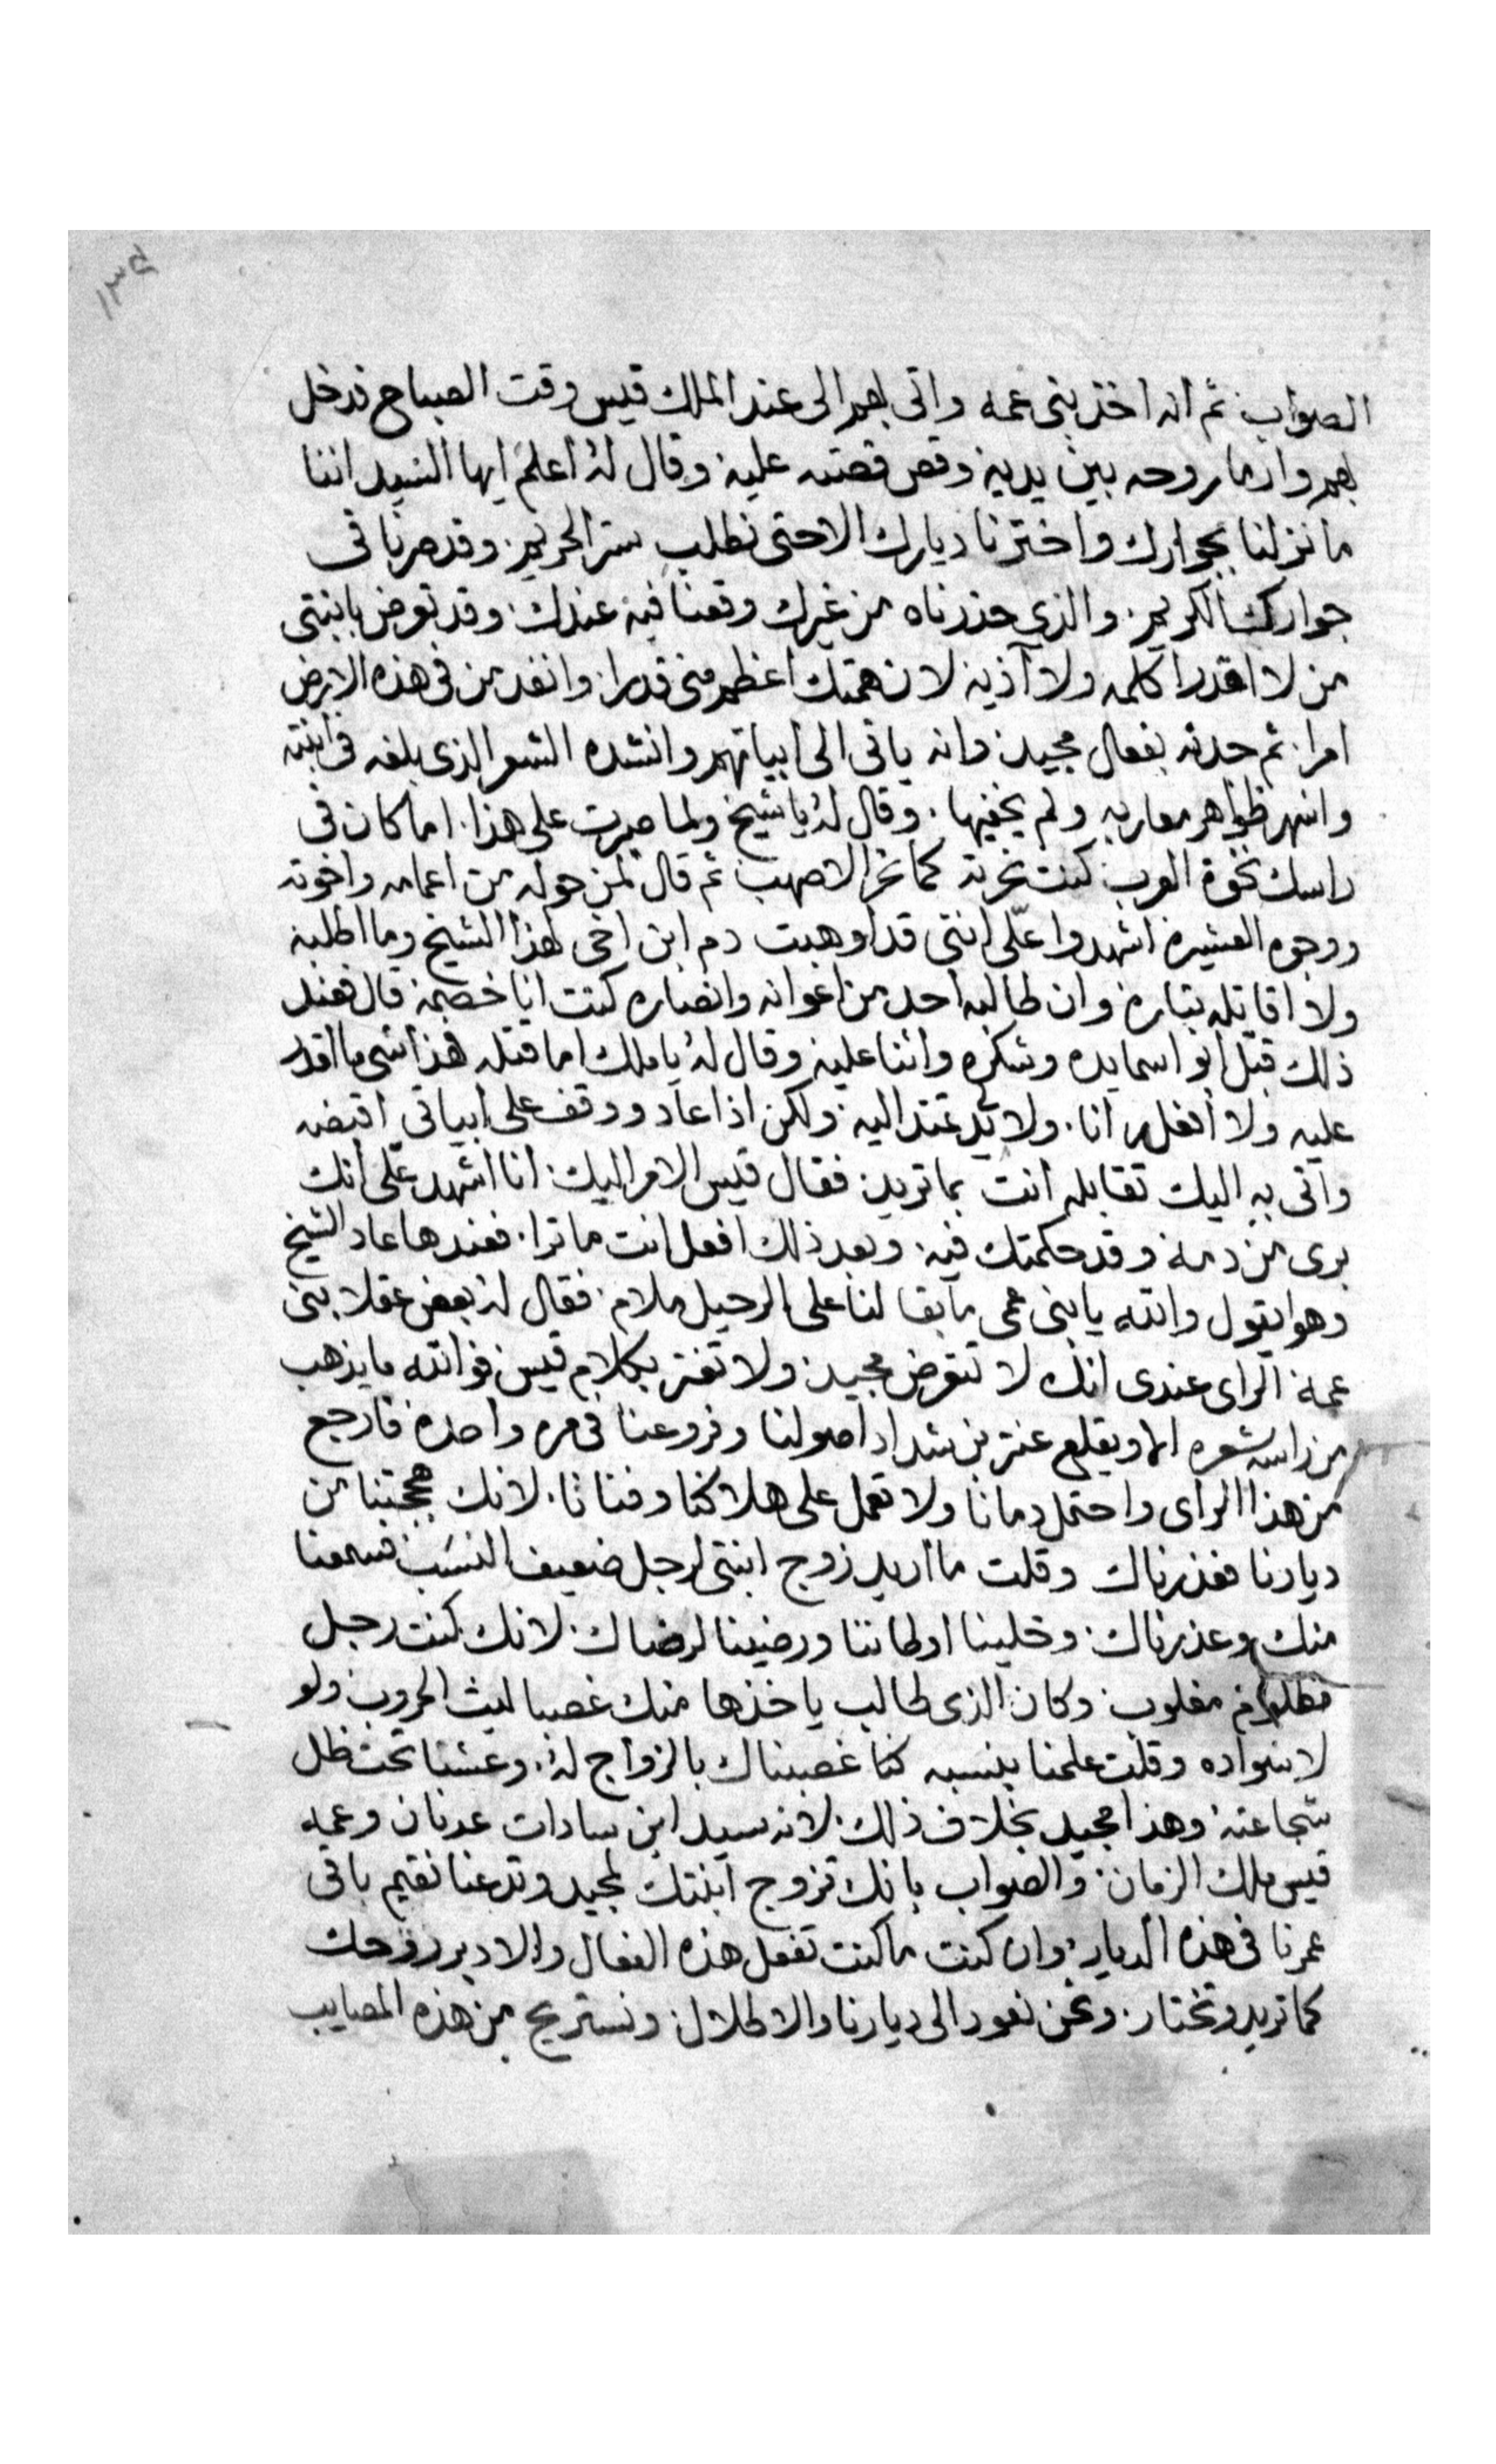 ١٣٤
الصواب ثم انه اخذ بنى عمه واتى بهم الى عند الملك قيس وقت الصباح فدخل
بهم وارما روحه بين يديه وقص قصته عليه وقال له اعلم ايها السيد اننا
ما نزلنا بجوارك واخترنا ديارك الا حتى نطلب ستر الحريم وقد صرنا فى
جوارك الكريم والذي حذرناه من غيرك وقعنا فيه عندك وقد تعرض بابنتى
من لا اقدر اكلمه ولا آذيه لان همتك اعظم منى قدرا وانفد من فى هذه الارض
امرا ثم حدثه بفعال مجيد وانه ياتى الى ابياتهم وانشده الشعر الذى بلغه فى ابنته
واشهر ظواهر معاربه ولم يخفيها وقال له يا شيخ ولما صبرت على هذا اما كان فى
راسك نخوة العرب كنت نحرته كما نحر الاصهب ثم قال لمن حوله من اعمامه واخوته
ووجوه العشيره اشهدوا علّى اننى قد اوهبت دم ابن اخى لهذا الشيخ وما اطلبه
ولا اقاتله بتاره وان طالبه احد من اعوانه وانصاره كنت انا خصمه قال فعند
ذلك قبّل ابو اسما يده وشكره واثنا عليه وقال له يا ملك اما قتله هذا شى ما اقدر
عليه ولا افعله انا ولا تمتد اليه ولكن اذا عاد ووقف على ابياتى اقبضه
واتى به اليك تقابله انت بما تريد فقال قيس الامر اليك انا اشهد على انك
برى من دمه وقد حكمتك فيه وبعد ذلك افعل انت ما ترا فعندها عاد الشيخ
وهو ايقول والله يا بنى عمى ما بقا لنا على الرحيل ملام فقال له بعض عقلا بنى
عمه الراى عندى انك لا تتعرض مجيد ولا تغتر بكلام قيس فوالله ما يذهب
من راسه شعره الا ويقلع عنتر بن شداد اصولنا وفروعنا فى مره واحده فارجع
من هذا الراى واحتمل دمانا ولا تعمل على هلاكنا وفنانا لانك هججتنا من
ديارنا فعذرناك وقلت ما اريد زوج ابنتى لرجل ضعيف النسب فسمعنا
منك وعذرناك وخلينا اوطاننا ورضينا لرضاك لانك كنت رجل
مظلوم مغلوب وكان الذى طالب ياخذها منك غصبا ليث الحروب ولو
لا سواده وقلت علمنا بنسبه كنا غصبناك بالزواج له وعشنا تحت ظل
شجاعته وهذا مجيد بخلاف ذلك لانه سيد ابن سادات عدنان وعمه
قيس ملك الزمان والصواب بانك تزوج ابنتك لمجيد وتدعنا نقيم باقى
عمرنا فى هذه الديار وان كنت ما كنت تفعل هذه الفعال والا دبر روحك
كما تريد وتختار ونحن نعود الى ديارنا والاطلال ونستريح من هذه المصايب